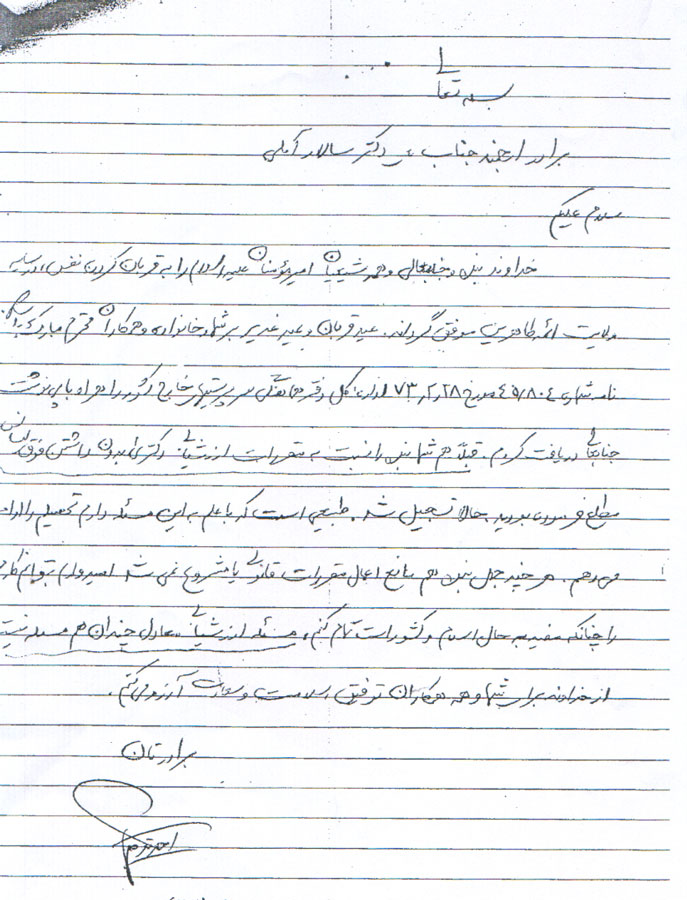 بسمه تعالی
برادر ارجمند جناب دکتر سالار آملی
سلام علیکم
خداوند بنده و جنابعالی و همه شیعیان امیرمؤمنان علیه السلام را به قربان کردن نفس در سایه
ولایت ائمه طاهرین موفق گرداند. عید قربان و عید غدیر بر شما و خانواده و همکاران محترم مبارک باد
نامه شماره ۴۵/۸۰۴ مورخ ۷۳،۲،۲۸ اداره کل دفتر هماهنگی سرپرستیهای خارج کشور را همراه با پی نوشت
جنابعالی دریافت کردم. قبلاً هم شما بنده را نسبت به مقررات ارزشیابی دکتری بدون داشتن فوق لیسانس
مطلع فرموده بودید حالا تسجیل شد. طبیعی است که با علم به این مسئله دارم تحصیلم را ادامه
می دهم. هر چند جهل بنده هم مانع اعمال مقررات قانونی یا مشروع نمی شد امیدوارم بتوانم کارم
را چنانکه مفید به حال اسلام و کشور است تمام کنم، مسئله ارزشیابی معادل چندان هم مسئله نیست
از خداوند برای شما و همه همکاران توفیق، سلامت و سعادت آرزو می کنم.
برادرتان